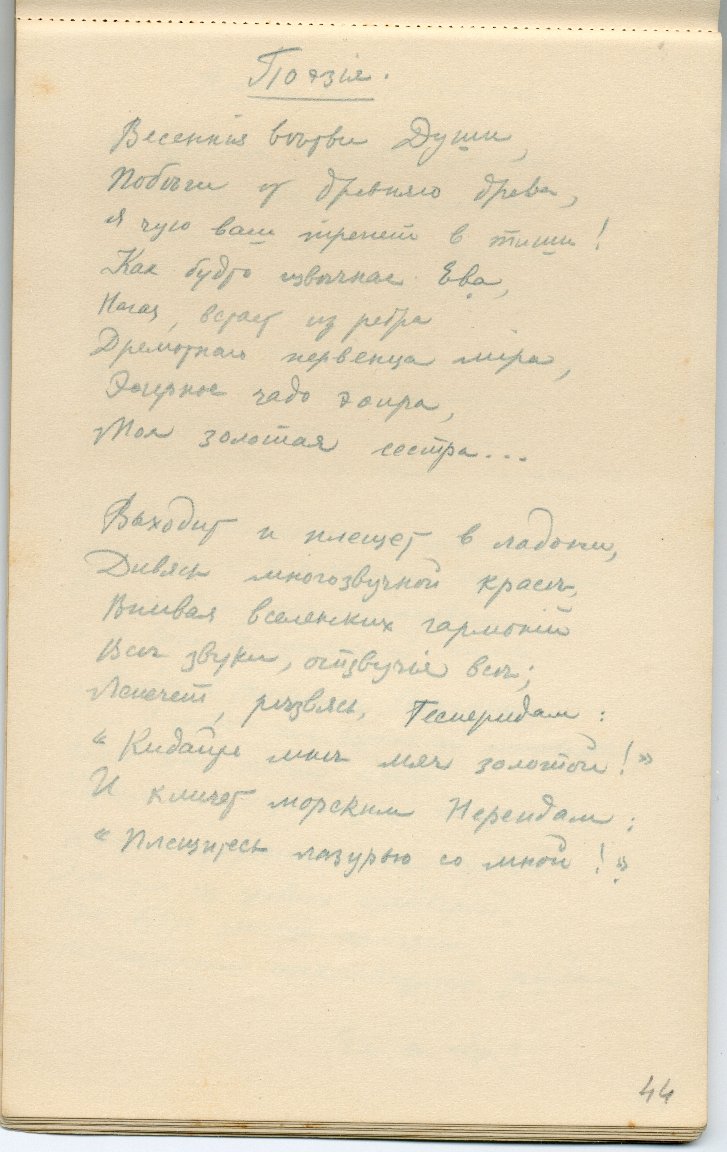 Поэзія.
Весеннія вѣтви Души,
Побѣги от древняго древа,
Я чую ваш трепет в тиши!
Как будто извѣчная Ева,
Нагая, встает из ребра
Дремотнаго первенца міра,
Эѳирное чадо эѳира,
Моя золотая сестра...
Выходит и плещет в ладони,
Дивясь многозвучной красѣ,
Впивая вселенских гармоній
Всѣ звуки, отзвучія всѣ;
Лепечет, рѣзвясь, Гесперидам:
"Кидайте мнѣ мяч золотой!"
И кличет морским Нереидам:
"Плещитесь лазурью со мной!"
44